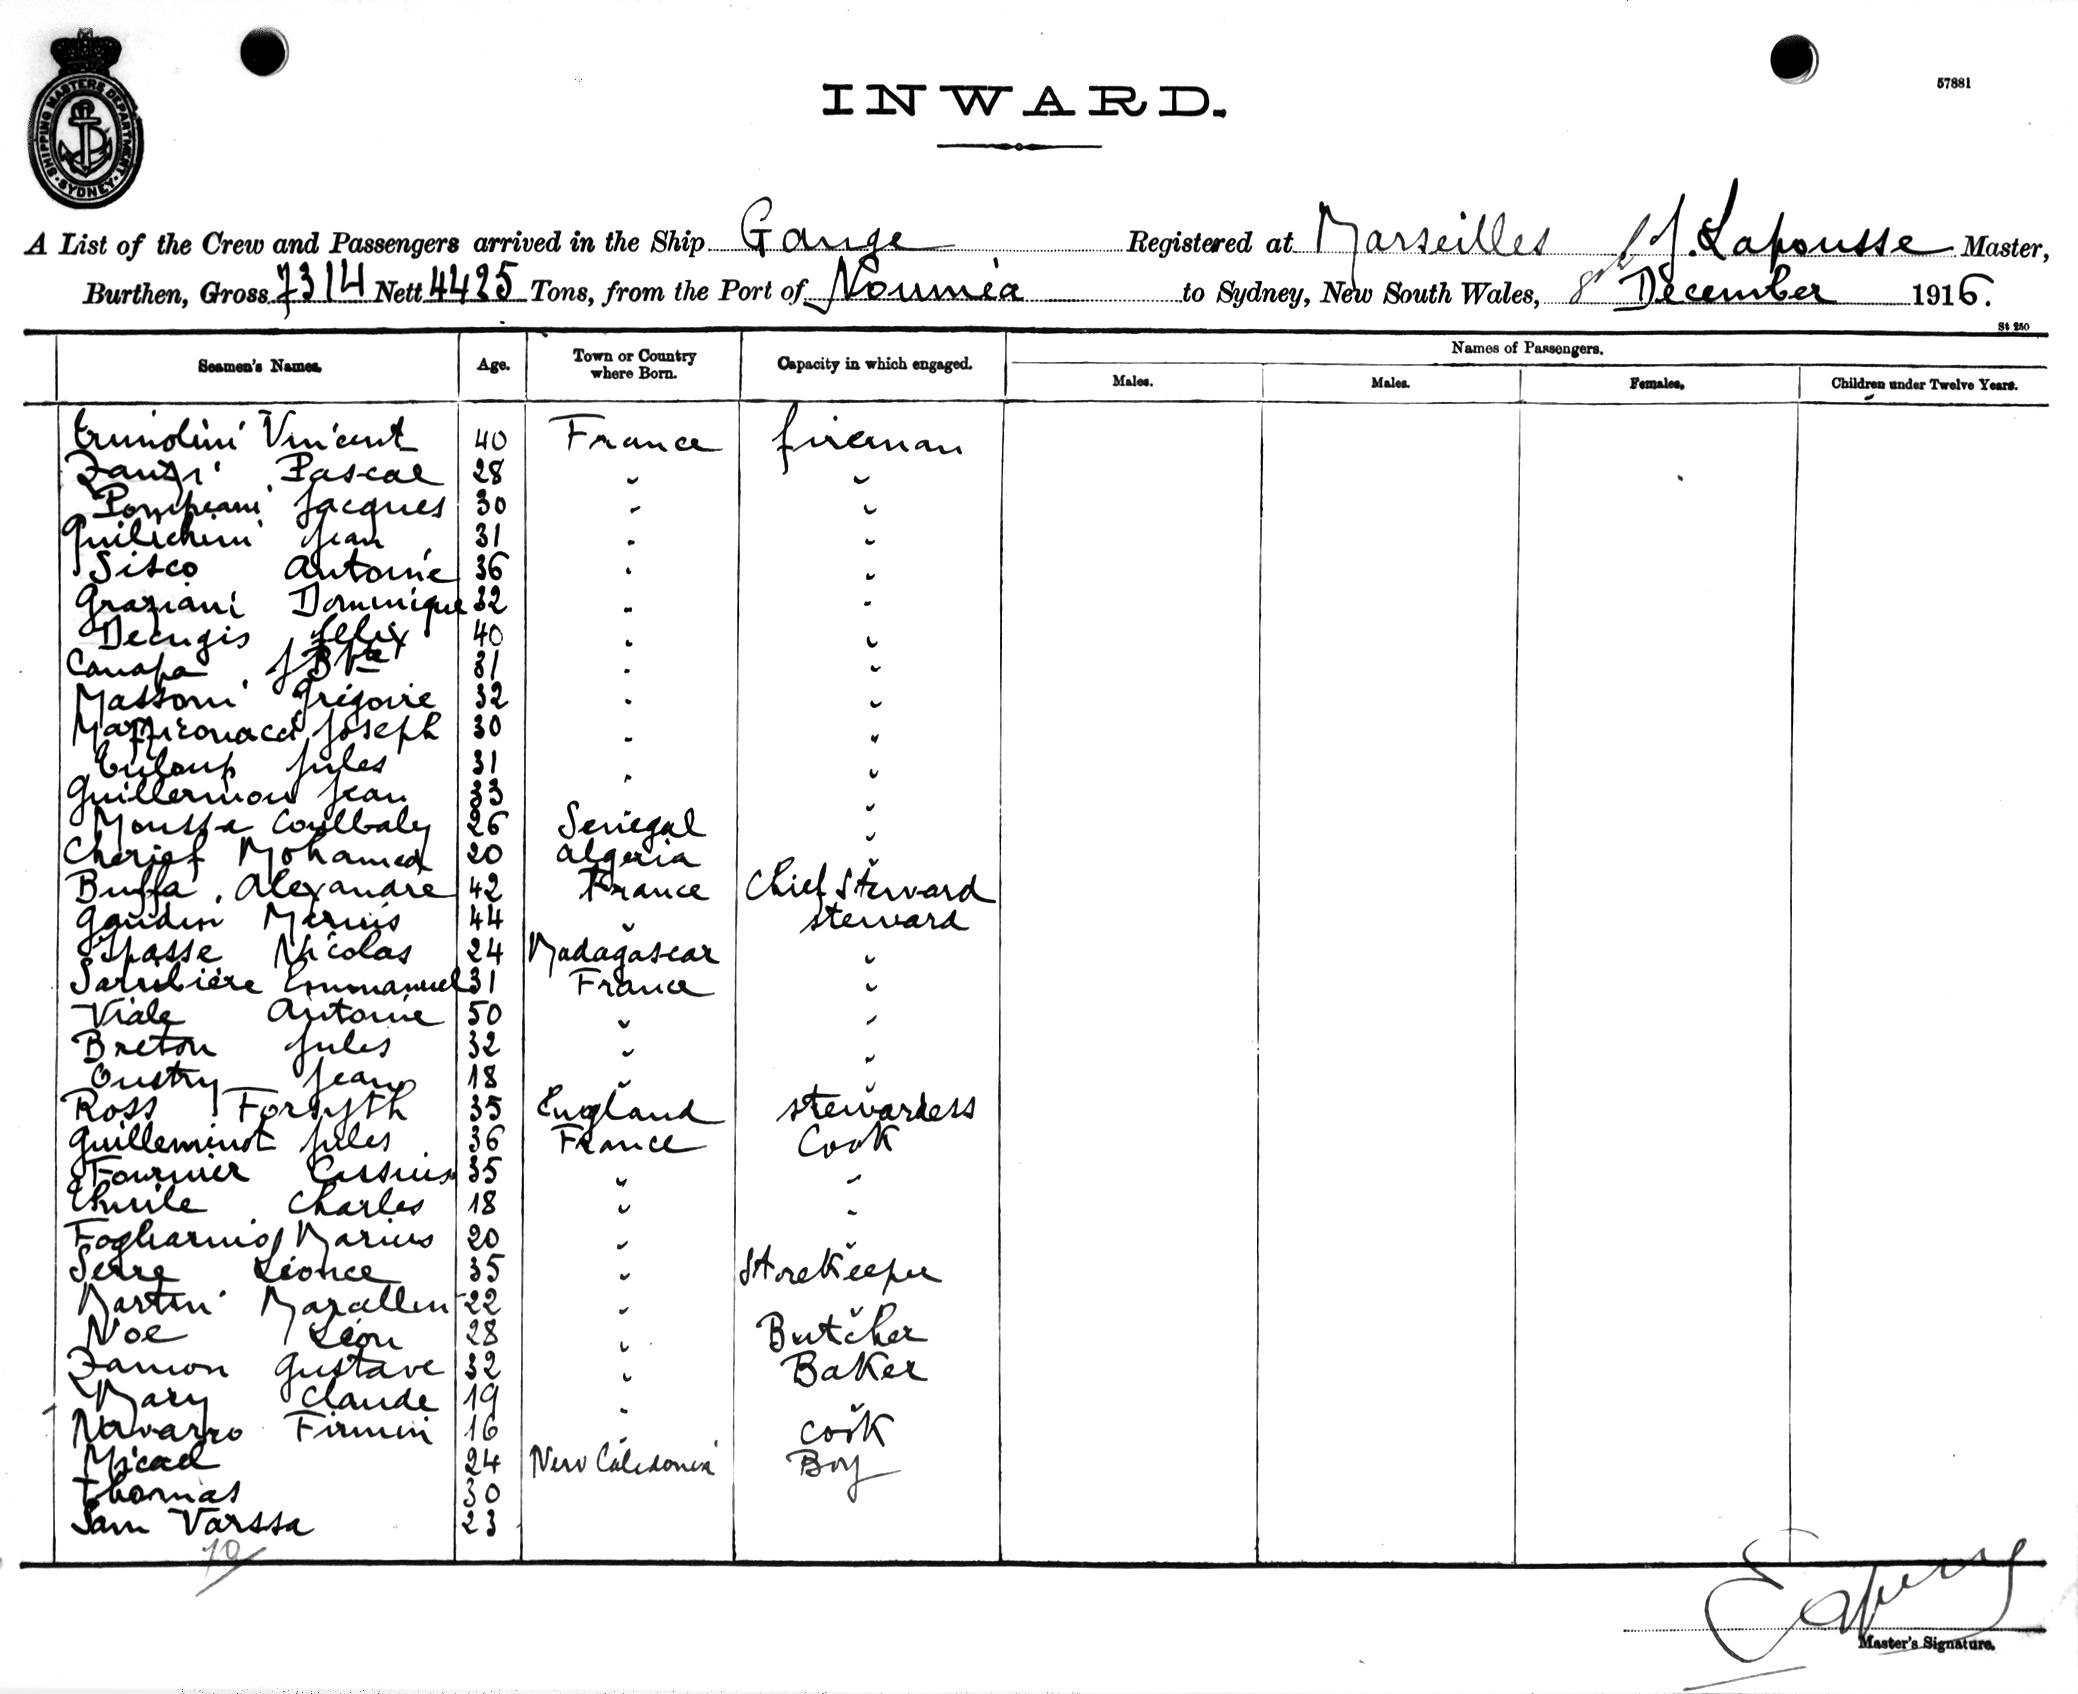 SHIPPING MASTERS DEPARTMENT · SYDNEY ·
57881
INWARD.
A List of the Crew and Passengers arrived in the Ship Gange Registered at Marseilles J. Lapousse Master,
Burthen, Gross 7314 Nett 4425 Tons, from the Port of Nouméa to Sydney, New South Wales, 8th December 1916.
St 250
Seamen's Names. Age. Town or Country where Born. Capacity in which engaged. Names of Passengers.
Males. Males. Females. Children under Twelve Years.
Vincent 40 France fireman
Zanzi Pascal 28 " "
Pompeani Jacques 30 " "
Guilichini Jean 31 " "
Sisco Antoine 36 " "
Graziani Dominique 32 " "
Decugis Felix 40 " "
Canapa J Bte 31 " "
Massoni Grégoire 32 " "
Joseph 30 " "
Jules 31 " "
Guillermou Jean 33 "
Moussa Coulbaly 26 Senegal "
Cherief Mohamed 20 Algeria "
Buffa Alexandre 42 France Chief Steward
Gaudin Marius 44 " steward
Nicolas 24 Madagascar "
Emmanuel 31 France "
Viale Antoine 50 " "
Breton Jules 32 " "
Oustry Jean 18 " "
Ross Forsyth 35 England stewardess
Guilleminot Jules 36 France Cook
Fournier Cassius 35 " "
Charles 18 " "
Marius 20 " "
Serre Léonce 35 " Storekeeper
Martin Marcellin 22 " "
Noe Léon 28 " Butcher
Zamon Gustave 32 " Baker
Mary Claude 19 " "
Navarro Firmin 16 " cook
Micael 24 New Caledonia Boy
Thomas 30
Sam Varssa 23
70
Master's Signature.